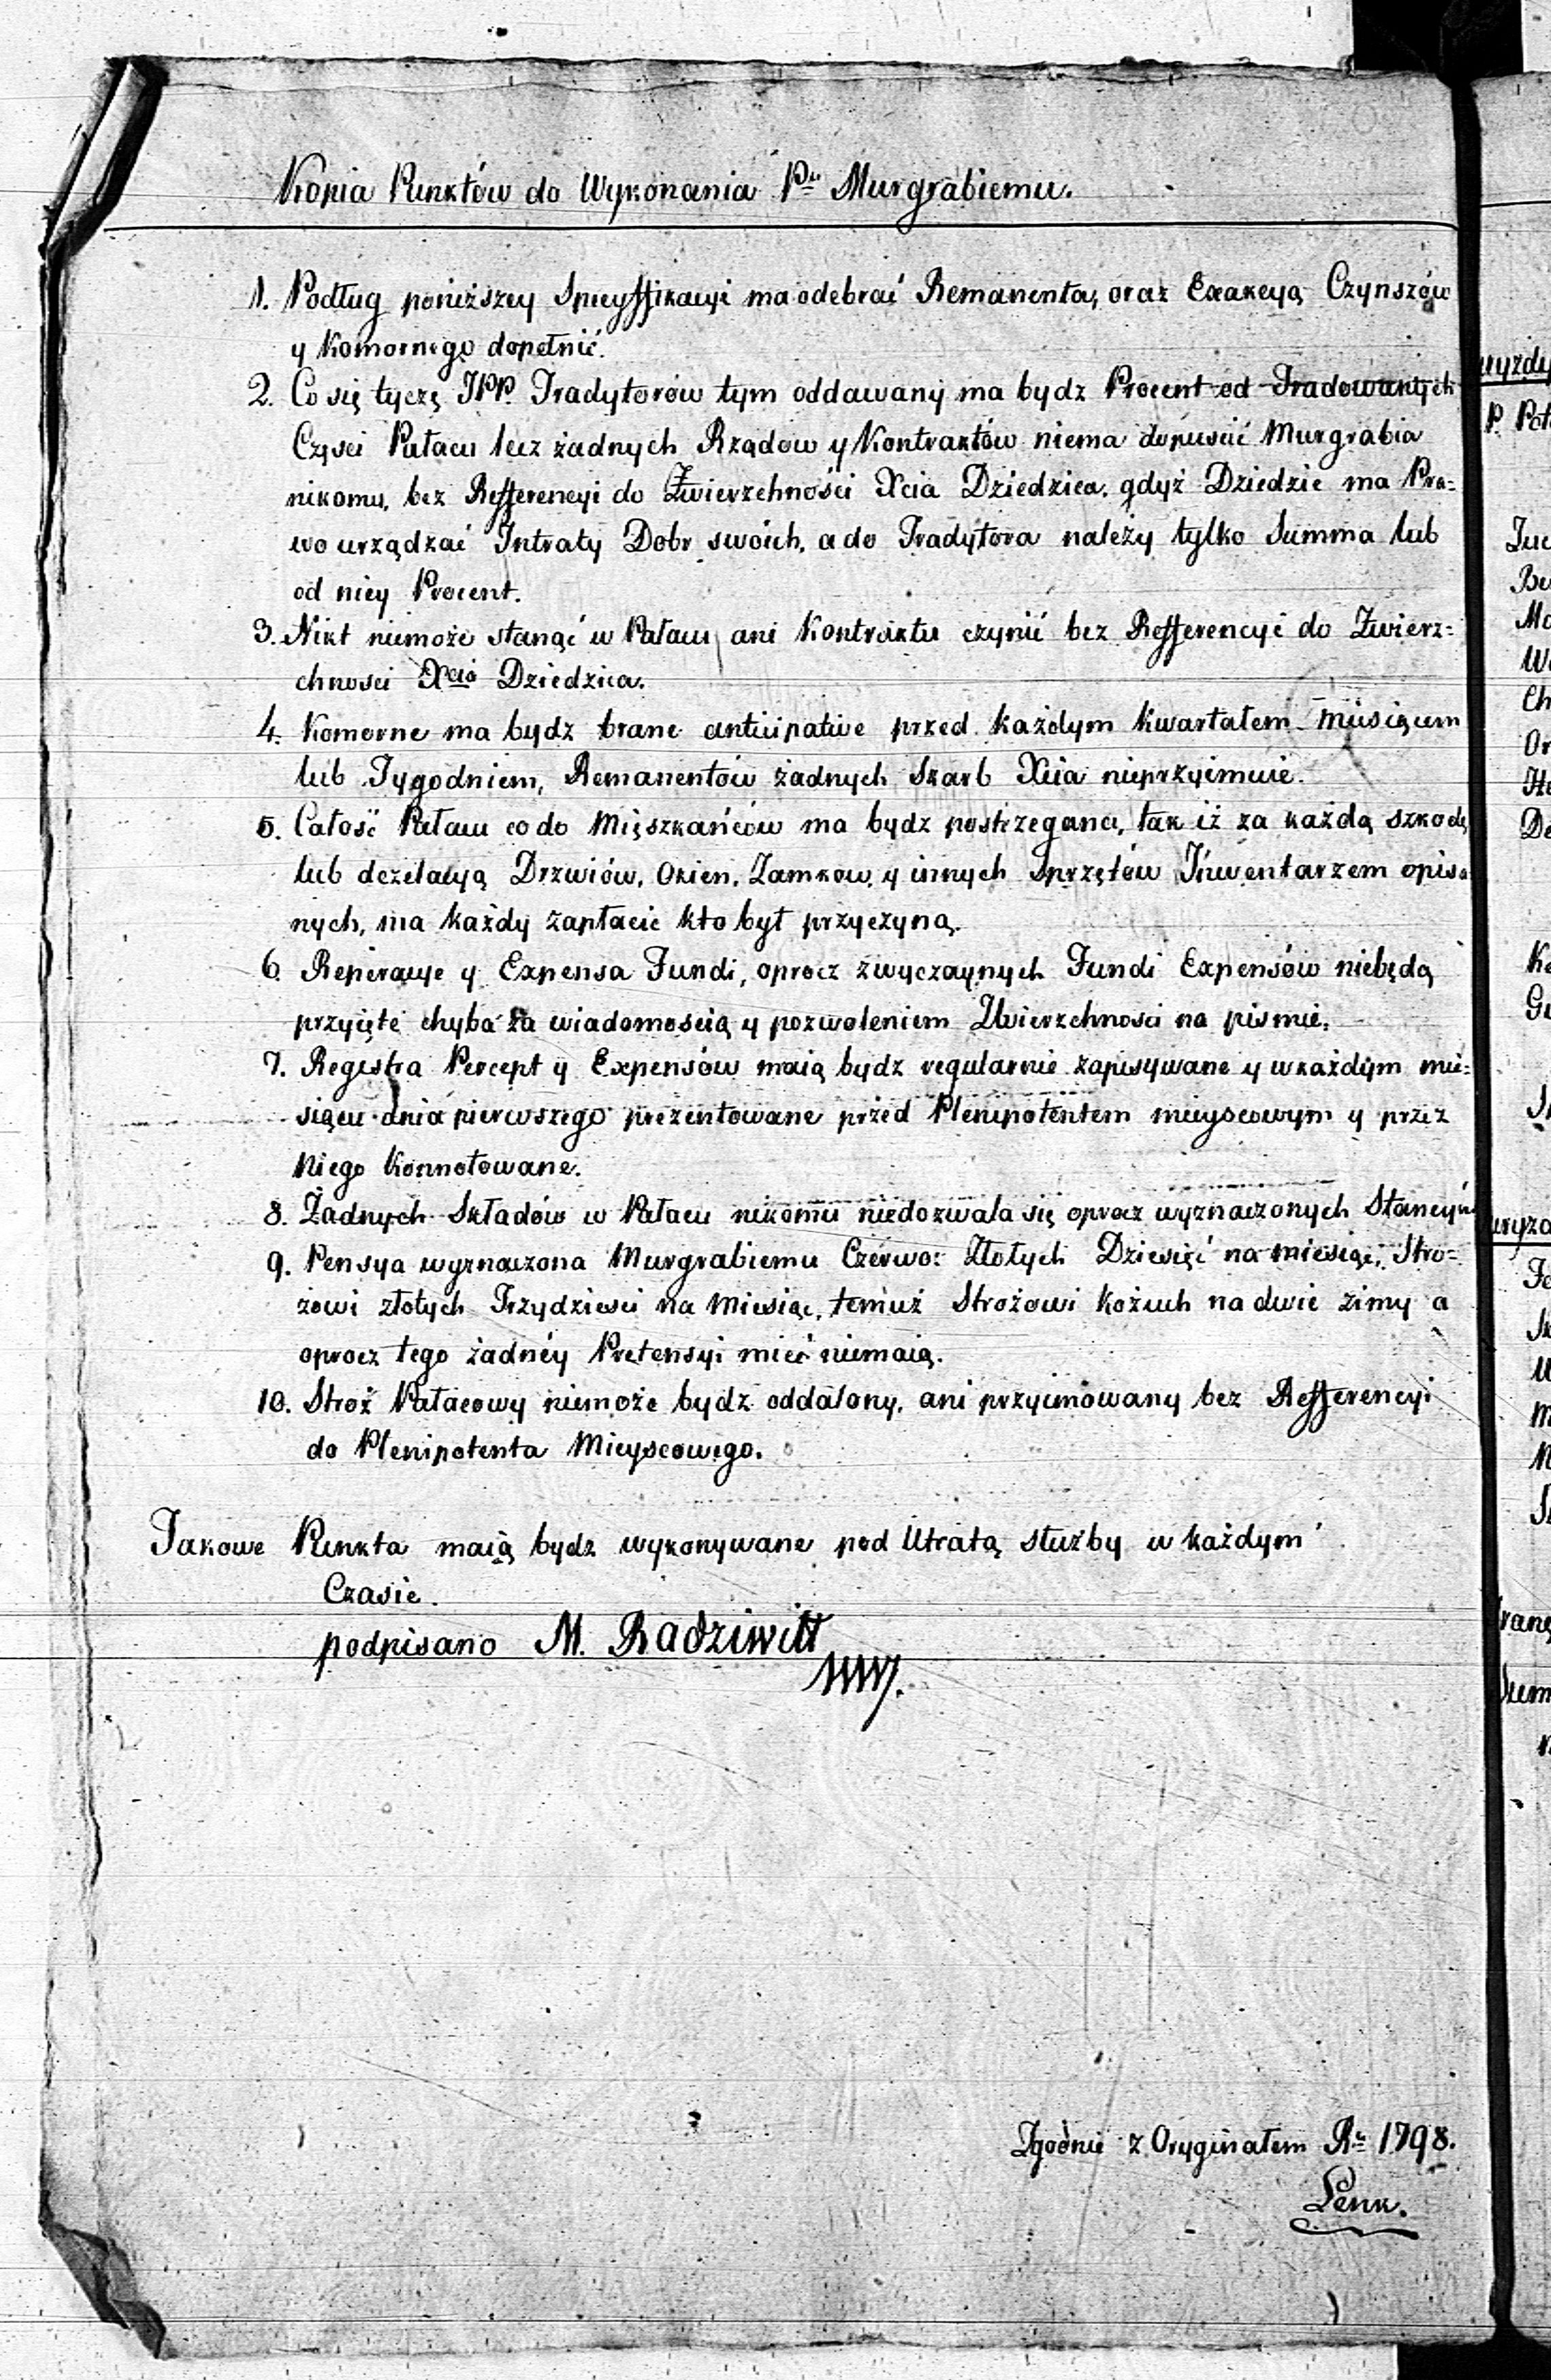 Kopia Punktów do Wykonania Pu Murgrabiemu.
1. Podług poniższey Specyffikacyi ma odebrać Remanenta, oraz Exakcyą Czynszów
y Komornego dopełnić.
2. Co się tyczę JPP. Tradytorów tym oddawany ma bydz Procent od Tradowanych
Częsci Pałacu lecz żadnych Rządow y Kontraktów niema dopuscić Murgrabia
nikomu, bez Refferencyi do Zwierzchności Xcia Dziedzica, gdyż Dziedzic ma Pra=
wo urządzać Intraty Dobr swóich, a do Tradytora należy tylko Summa lub
od niey Procent.
3. Nikt niemoże stanąć w Pałacu, ani Kontraktu czynić bez Refferencyi do Zwierz=
chnosci Xcia Dziedzica.
4. Komorne ma bydz brane anticipative przed każdym kwartałem miesiącem
lub Tygodniem, Remanentów żadnych Skarb Xcia nieprzyimuie.
5. Całość Pałacu co do Mięszkańców ma bydz postrzegana, tak iż za każdą szkodę
lub dezelacyą Drzwiów, Okien, Zamkow, y innych Sprzętów Inwentarzem opisa
nych, ma każdy zapłacic kto był przyczyną.
6. Reperacye y Expensa Fundi, oprocz zwyczaynych Fundi Expensów niebędą
przyięte chyba za wiadomoscią y pozwoleniem Zwierzchnosci na pismie.
7. Regestra Percept y Expensów maią bydz regularnie zapisywane y w każdym mie=
siącu dnia pierwszego prezentowane przed Plenipotentem mieyscowym y przez
Niego Konnotowane.
8. Żadnych Składów w Pałacu nikomu niedozwala się oprocz wyznaczonych
9. Pensya wyznaczona Murgrabiemu Czerwo: Złotych Dziesięć na miesiąc, Stro=
żowi złotych Trzydziesci na Miesiąc, temuż Strożowi kożuch na dwie zimy a
oprocz tego żadnéy Pretensyi mieć niemaią.
10. Stroż Pałacowy niemoże bydz oddalony, ani przyimowany bez Refferencyi
do Plenipotenta Mieyscowego.
Takowe Punkta maią bydz wykonywane pod Utratą służby w każdym
Czasie.
podpisano M. Radziwiłł
Zgodnie z Oryginałem Ru 1798.
Lenk.